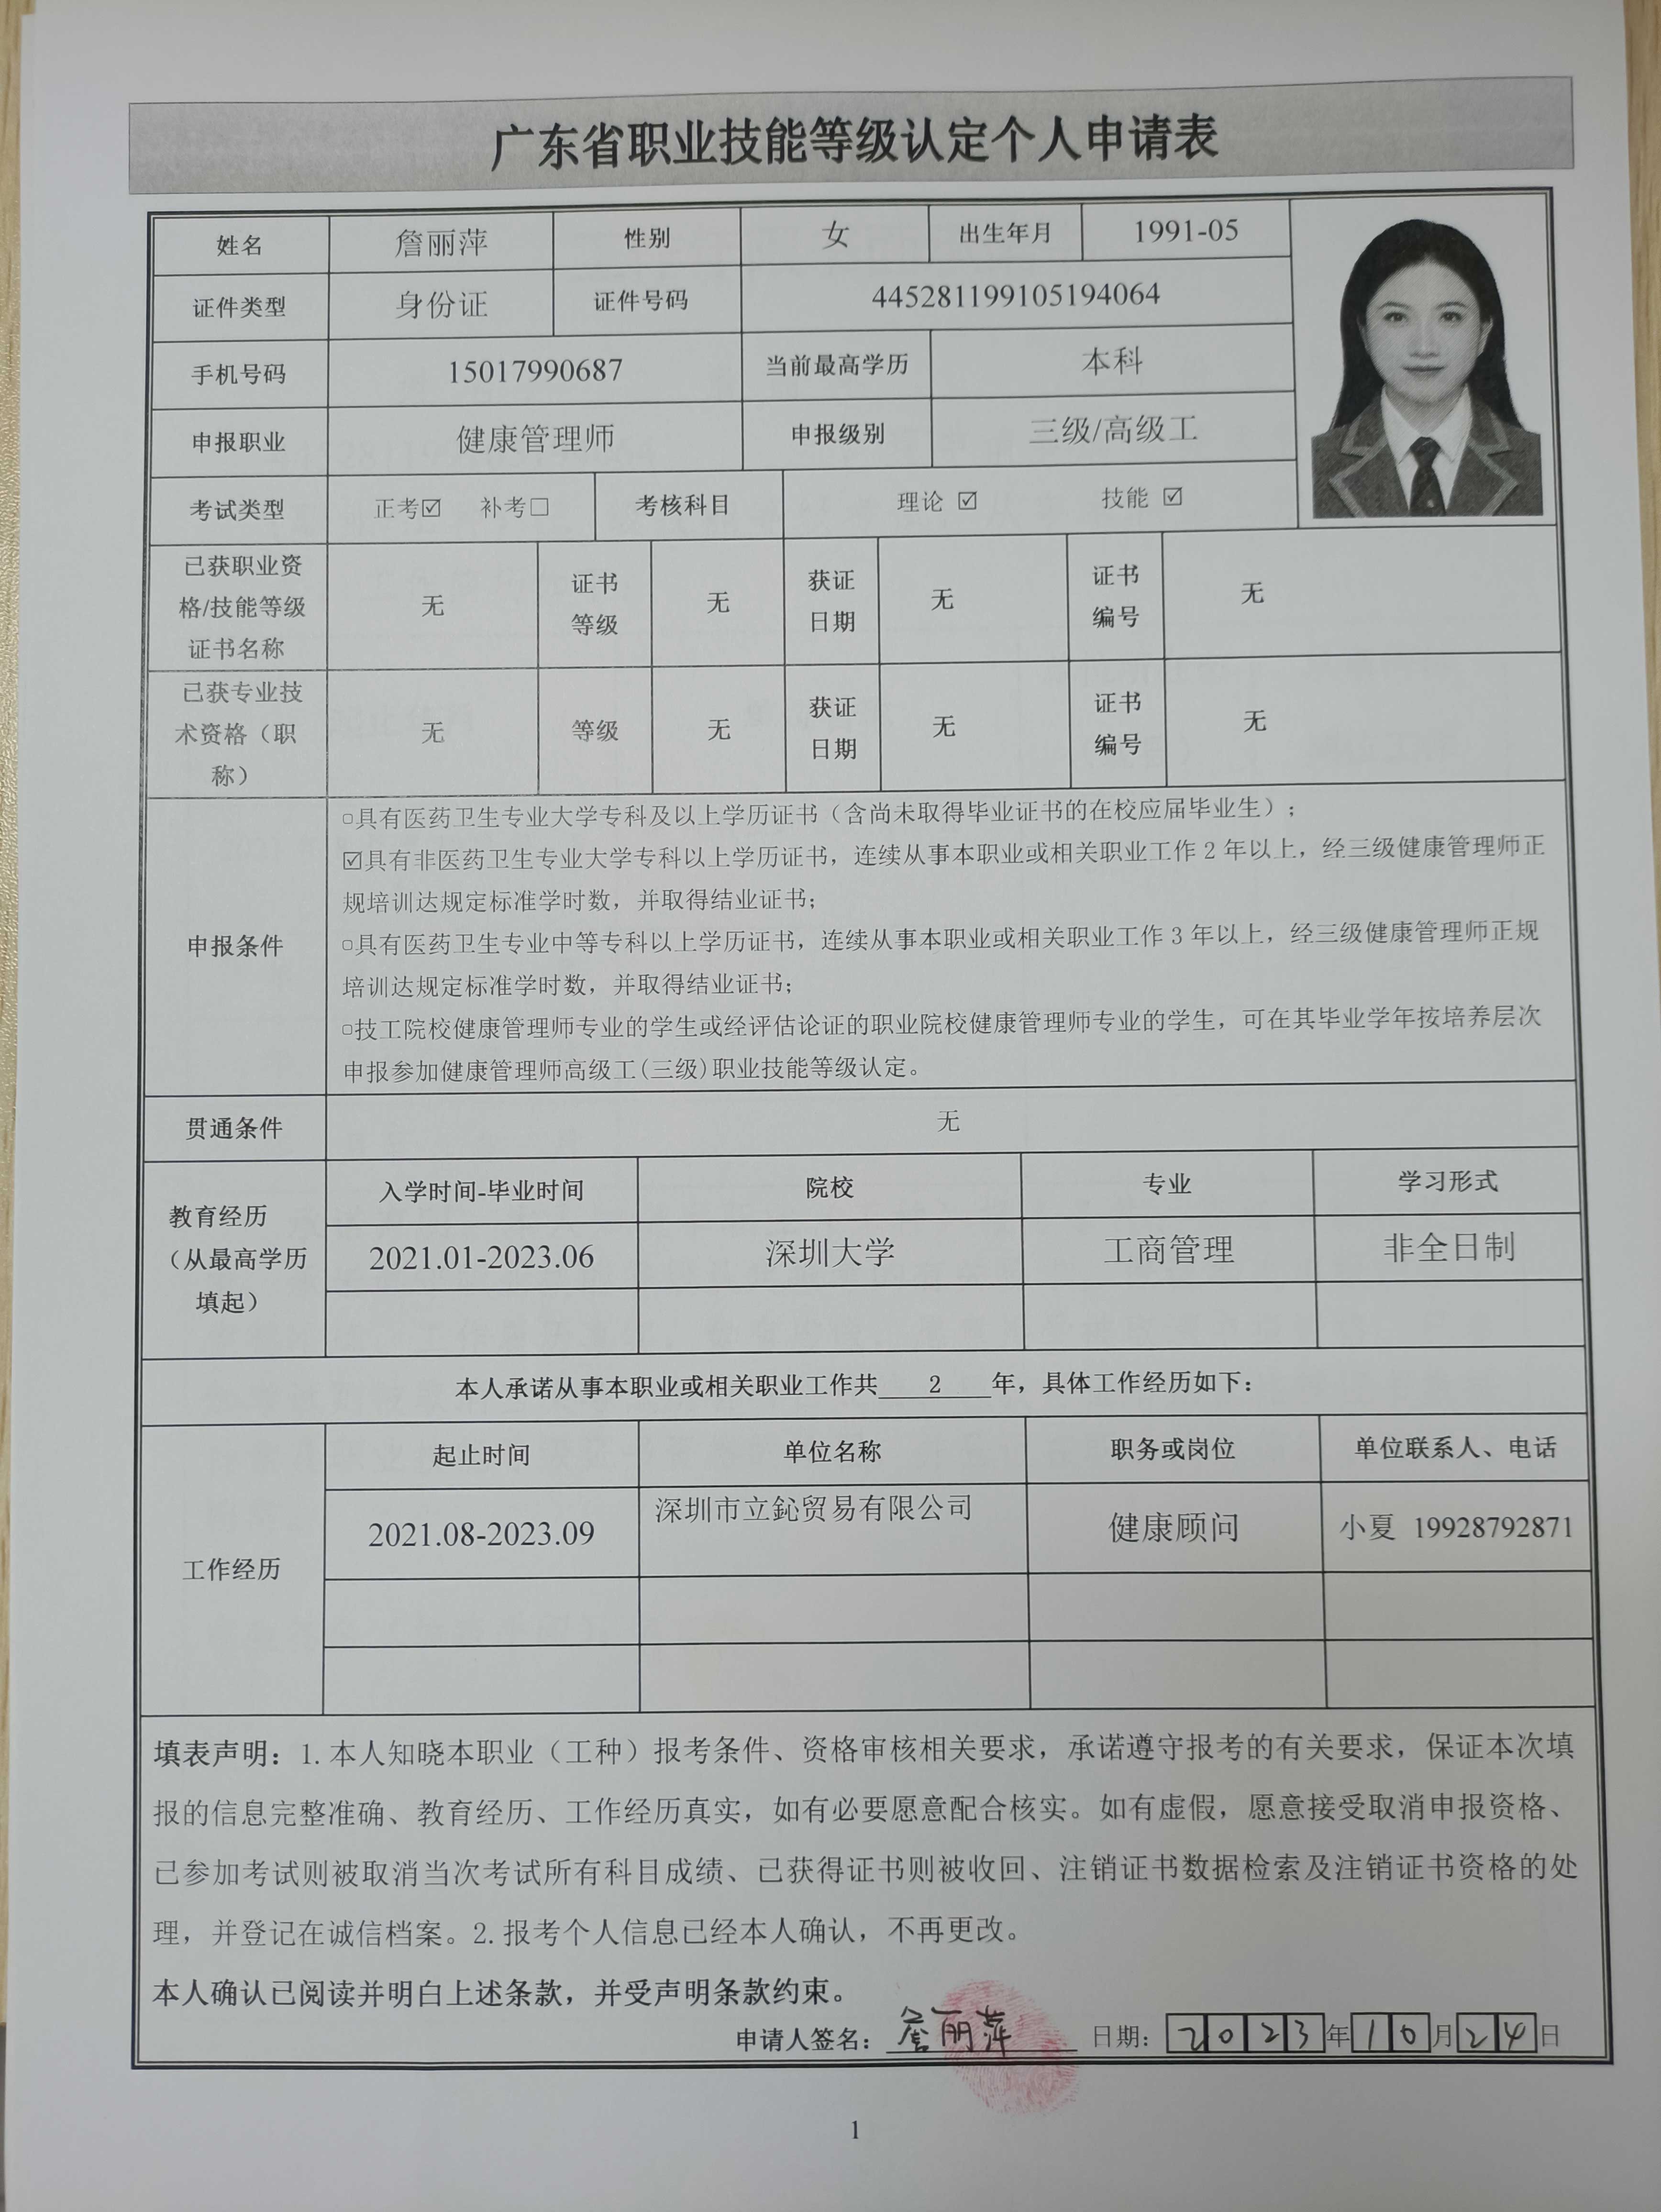 广东省职业技能等级认定个人申请表
姓名 詹丽萍 性别 女 出生年月 1991-05
证件类型 身份证 证件号码 445281199105194064
手机号码 15017990687 当前最高学历 本科
申报职业 健康管理师 申报级别 三级/高级工
考试类型 正考☑ 补考☐ 考核科目 理论 ☑ 技能 ☑
已获职业资格/技能等级证书名称 无 证书等级 无 获证日期 无 证书编号 无
已获专业技术资格（职称） 无 等级 无 获证日期 无 证书编号 无
申报条件
▢具有医药卫生专业大学专科及以上学历证书（含尚未取得毕业证书的在校应届毕业生）；
☑具有非医药卫生专业大学专科以上学历证书，连续从事本职业或相关职业工作 2 年以上，经三级健康管理师正
规培训达规定标准学时数，并取得结业证书；
▢具有医药卫生专业中等专科以上学历证书，连续从事本职业或相关职业工作 3 年以上，经三级健康管理师正规
培训达规定标准学时数，并取得结业证书；
▢技工院校健康管理师专业的学生或经评估论证的职业院校健康管理师专业的学生，可在其毕业学年按培养层次
申报参加健康管理师高级工(三级)职业技能等级认定。
贯通条件 无
教育经历（从最高学历填起）
入学时间-毕业时间 院校 专业 学习形式
2021.01-2023.06 深圳大学 工商管理 非全日制
本人承诺从事本职业或相关职业工作共 2 年，具体工作经历如下：
工作经历
起止时间 单位名称 职务或岗位 单位联系人、电话
2021.08-2023.09 深圳市立鈊贸易有限公司 健康顾问 小夏 19928792871
填表声明：1.本人知晓本职业（工种）报考条件、资格审核相关要求，承诺遵守报考的有关要求，保证本次填
报的信息完整准确、教育经历、工作经历真实，如有必要愿意配合核实。如有虚假，愿意接受取消申报资格、
已参加考试则被取消当次考试所有科目成绩、已获得证书则被收回、注销证书数据检索及注销证书资格的处
理，并登记在诚信档案。2.报考个人信息已经本人确认，不再更改。
本人确认已阅读并明白上述条款，并受声明条款约束。
申请人签名：詹丽萍 日期：2023年10月24日
1